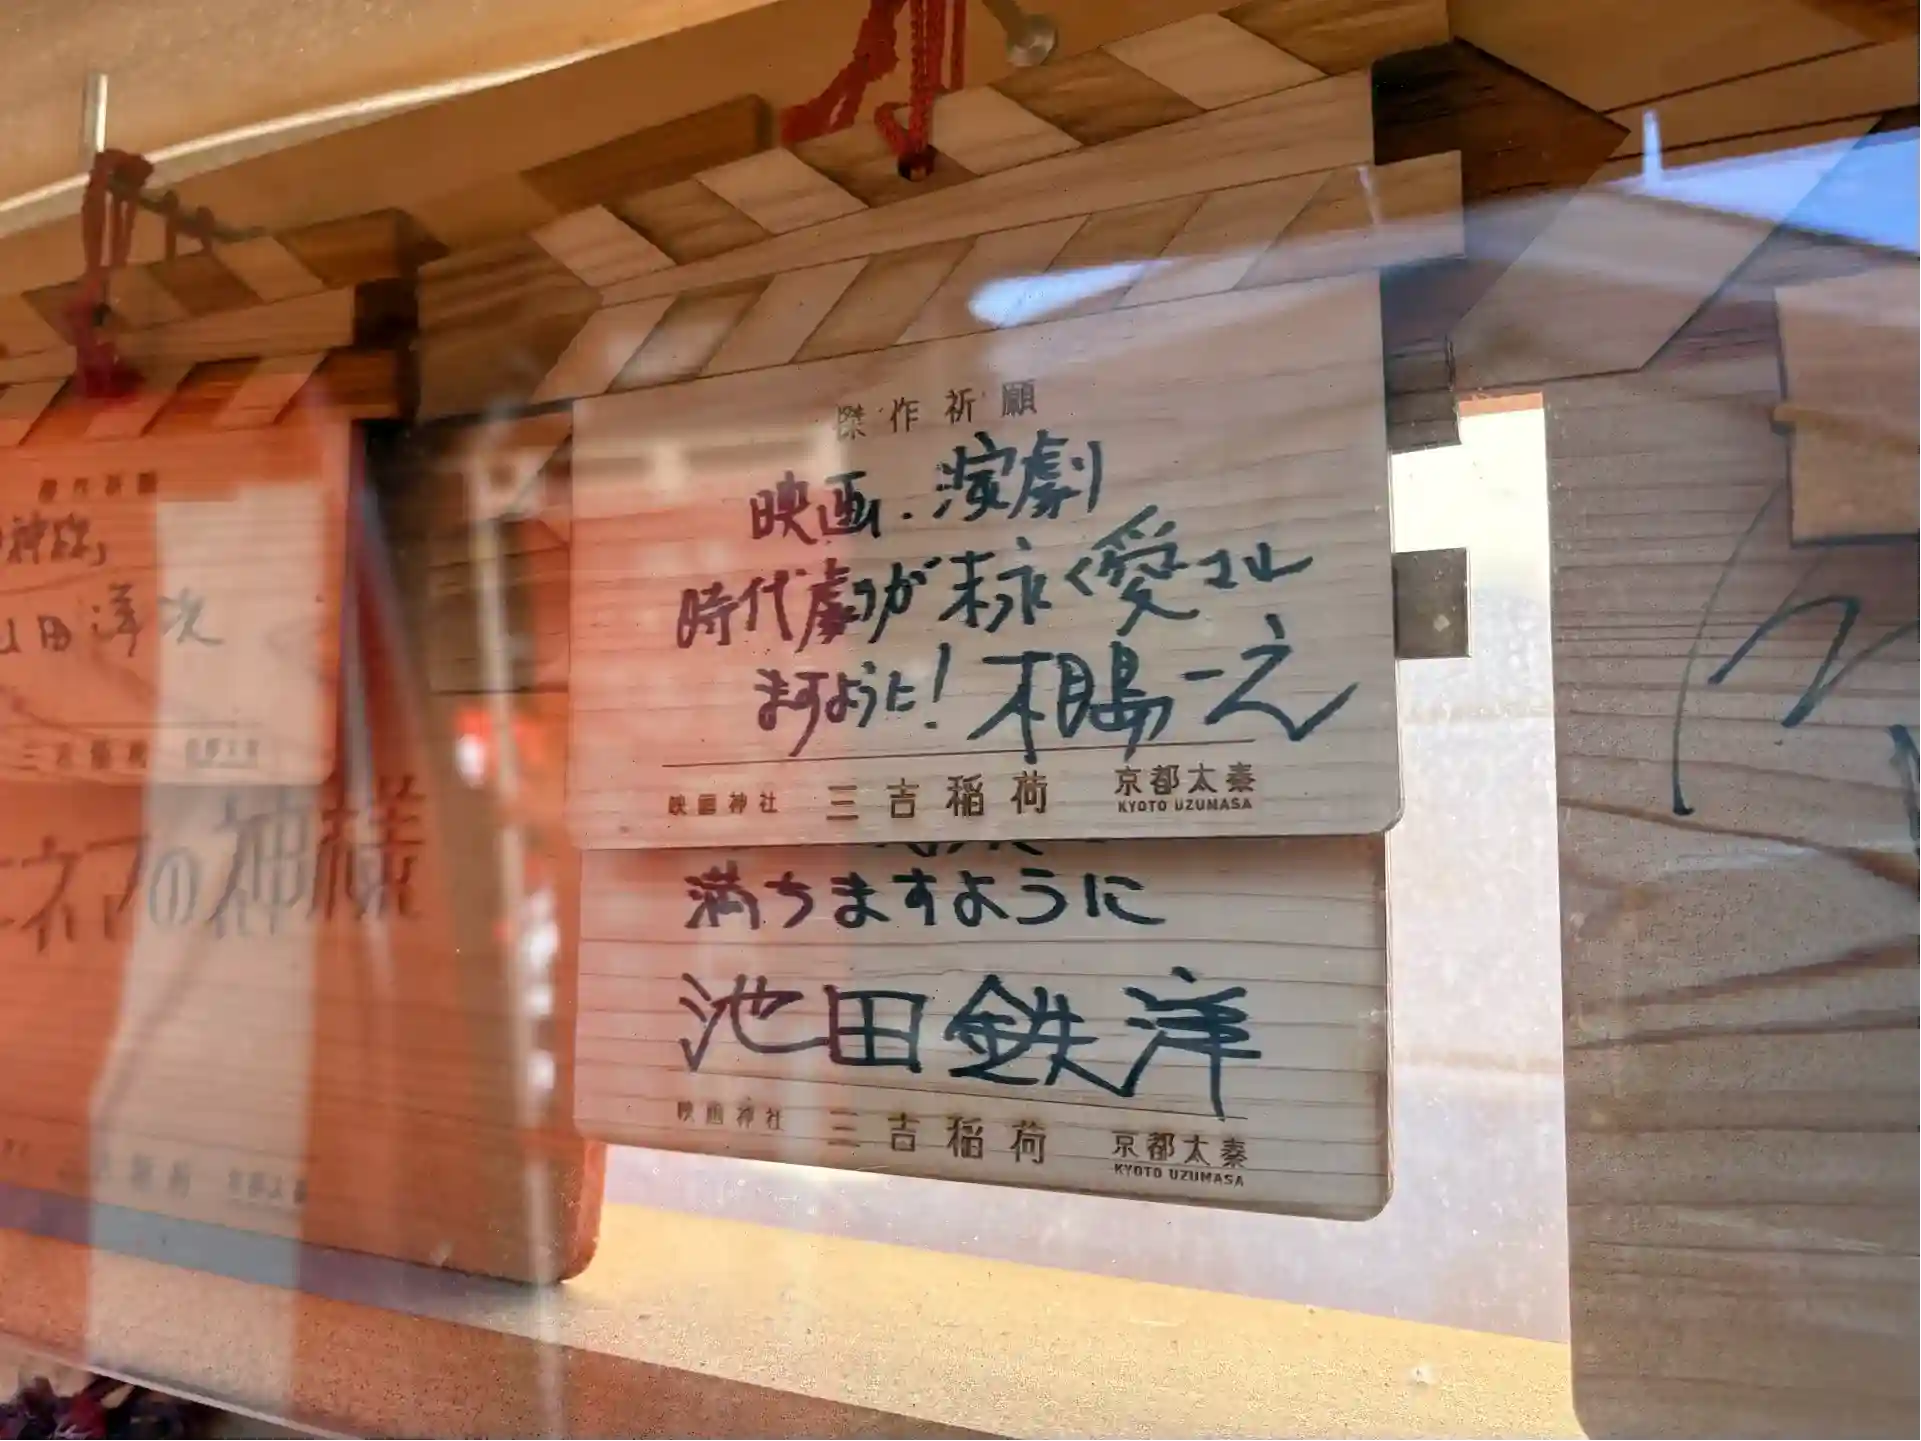 傑作祈願
映画.演劇
時代劇が末永く愛され
ますように! 相島一之
映画神社 三吉稲荷 京都太秦
KYOTO UZUMASA
満ちますように
池田鉄洋
映画神社 三吉稲荷 京都太秦
KYOTO UZUMASA
傑作祈願
山田洋次
三吉稲荷 京都太秦
キネマの神様